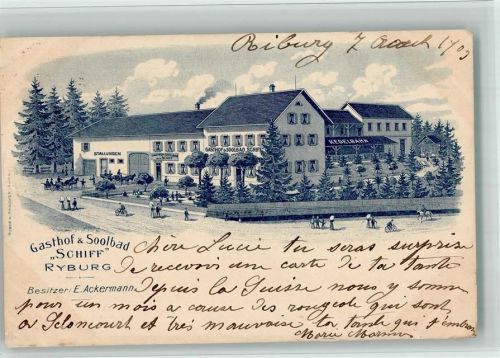 Riburg 7 Aout 1903
STALLUNGEN
GASTHOF & SOOLBAD SCHIFF
KEGELBAHN
Gasthof & Soolbad
„SCHIFF"
RYBURG
Besitzer: E. Ackermann
Chère Lucie tu seras surprise
de recevoir une carte de ta tante
depuis la Suisse nous y somme
pour un mois a cause des rougeole qui sont
a Seloncourt et très mauvaise ta tante qui t'embrasse
Marie